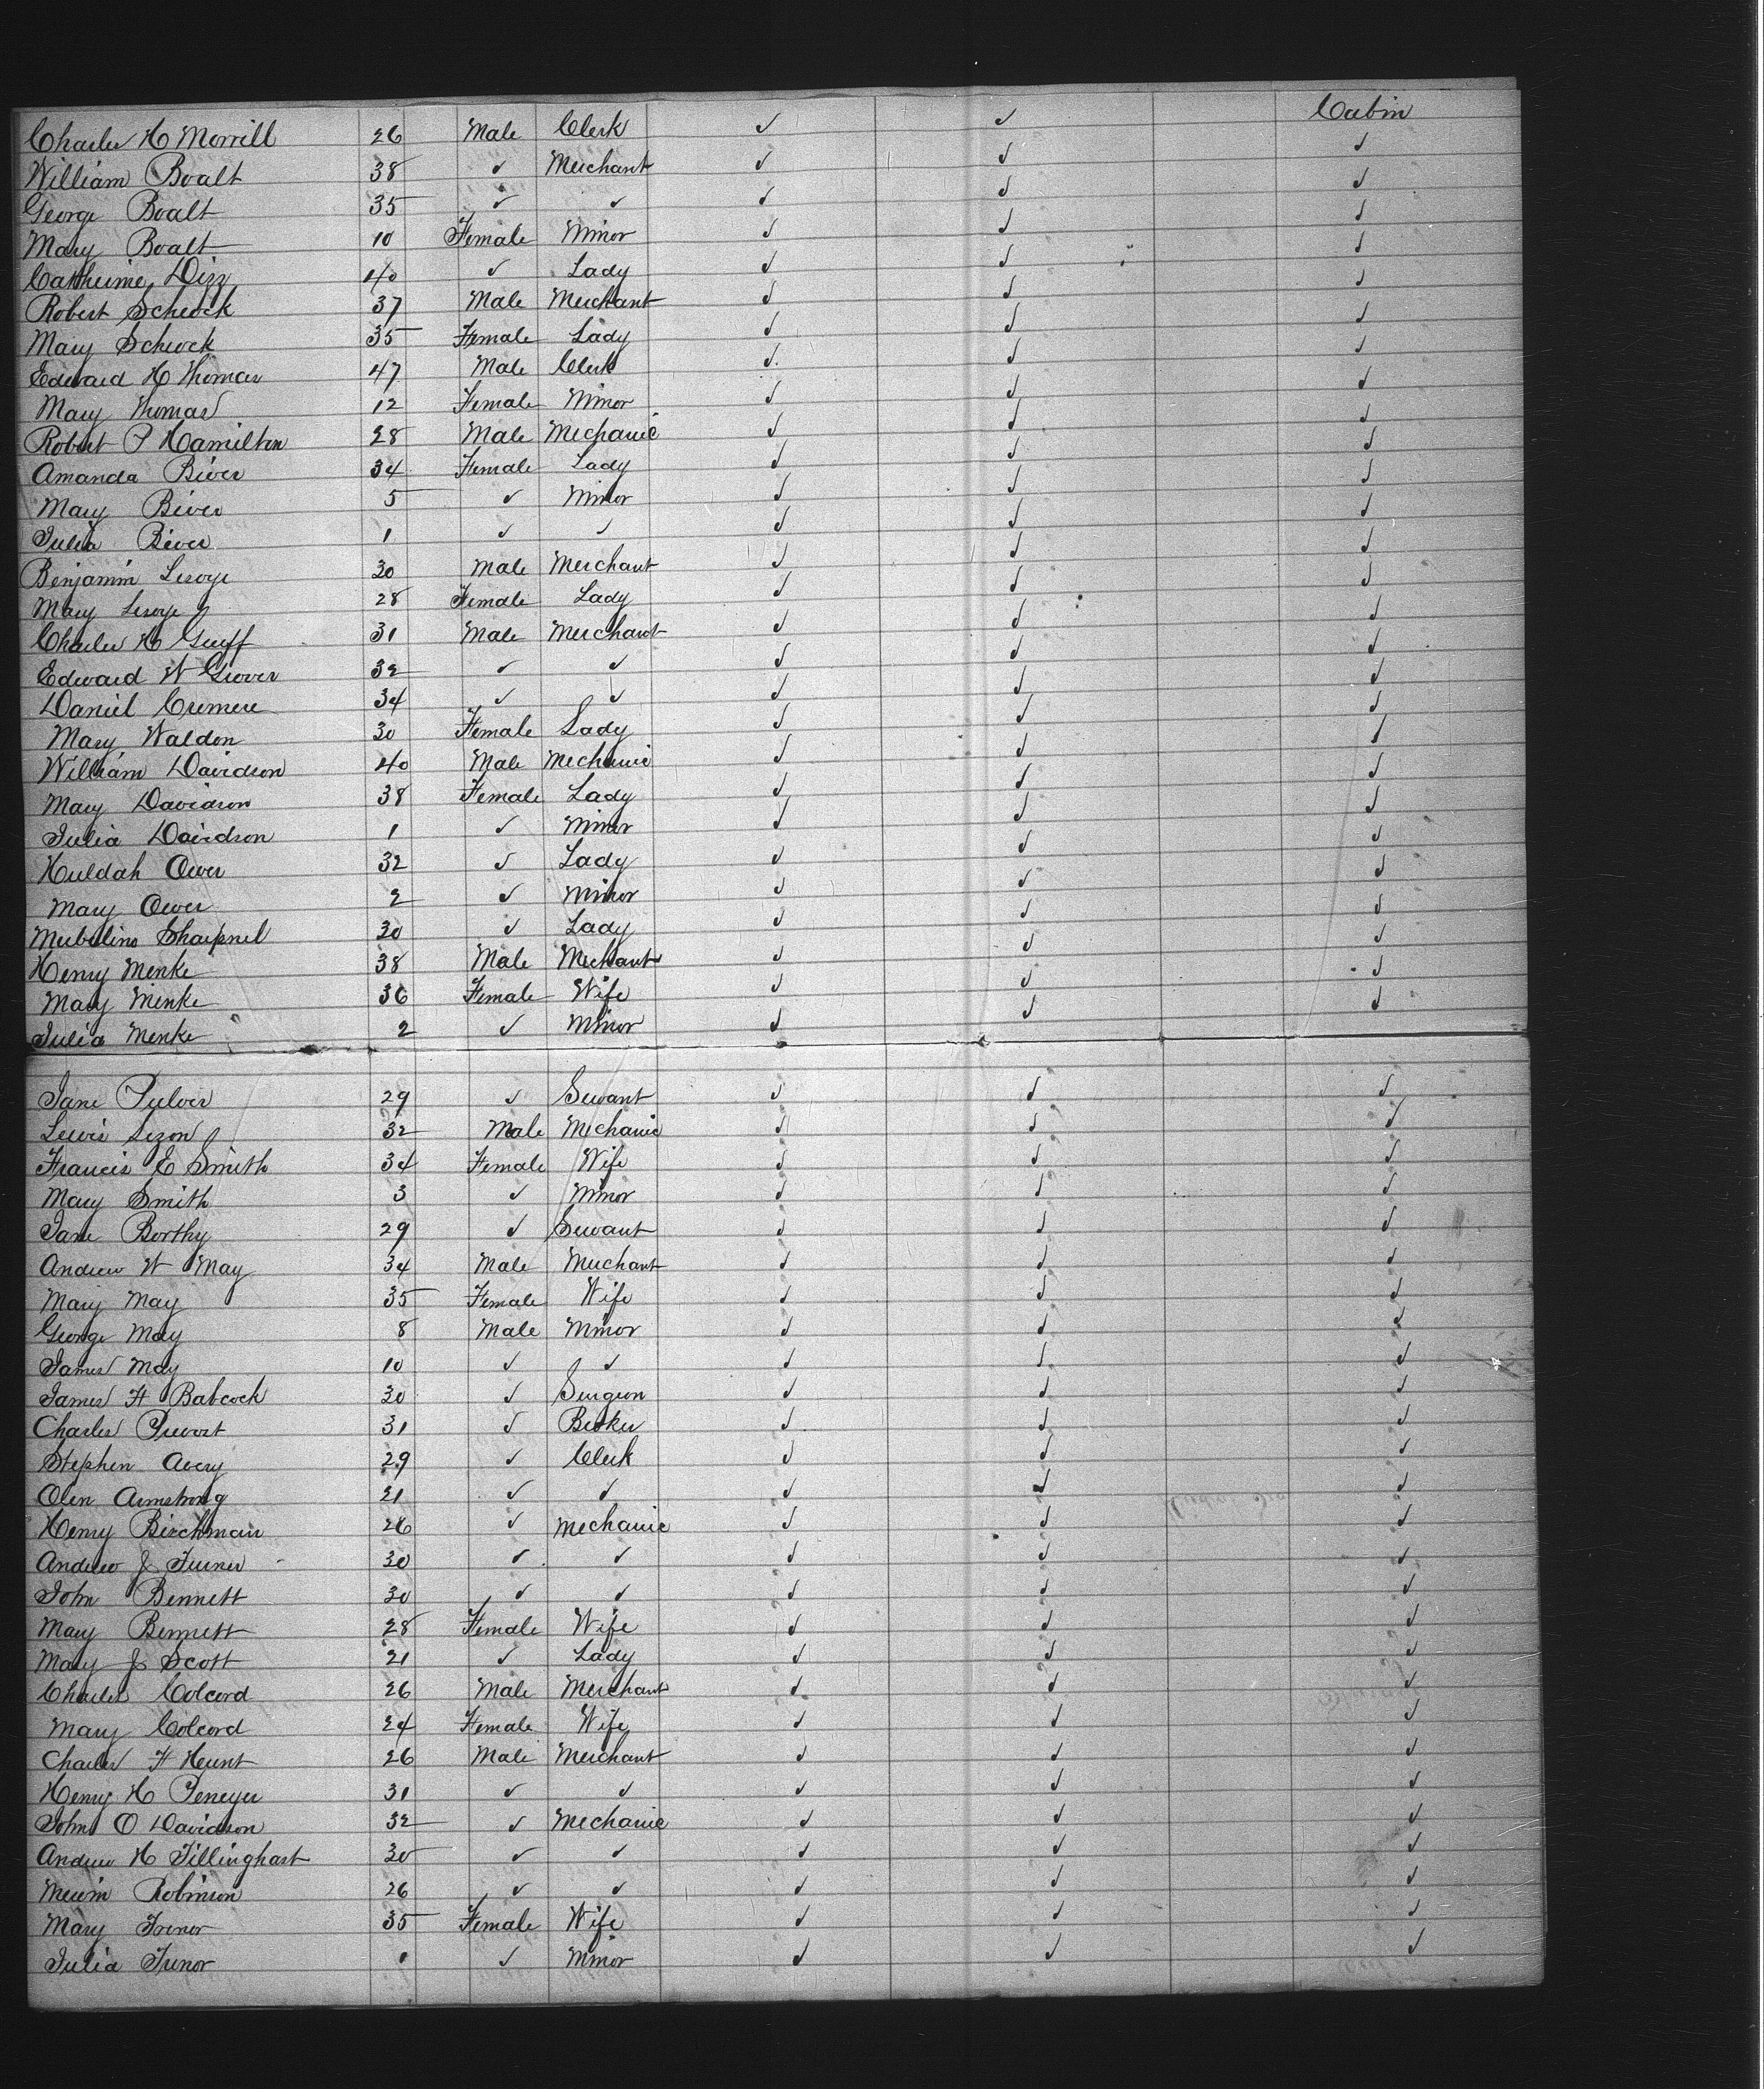 Charles H Morrill 26 Male Clerk ✓ ✓ Cabin
William Boalt 38 ✓ Merchant ✓ ✓ ✓
George Boalt 35 ✓ ✓ ✓ ✓ ✓
Mary Boalt 10 Female Minor ✓ ✓ ✓
Catherine Dizz 40 ✓ Lady ✓ ✓ ✓
Robert Schenck 37 Male Merchant ✓ ✓ ✓
Mary Schenck 35 Female Lady ✓ ✓ ✓
Edward H Thomas 47 Male Clerk ✓ ✓ ✓
Mary Thomas 12 Female Minor ✓ ✓ ✓
Robert P Hamilton 28 Male Mechanic ✓ ✓ ✓
Amanda Biver 34 Female Lady ✓ ✓ ✓
Mary Biver 5 ✓ Minor ✓ ✓ ✓
Julia Biver 1 ✓ ✓ ✓ ✓ ✓
Benjamin Leroye 30 Male Merchant ✓ ✓ ✓
Mary Leroye 28 Female Lady ✓ ✓ ✓
Charles H 31 Male Merchant ✓ ✓ ✓
Edward W Grover 32 ✓ ✓ ✓ ✓ ✓
Daniel 34 ✓ ✓ ✓ ✓ ✓
Mary Waldon 30 Female Lady ✓ ✓ ✓
William Davidson 40 Male Mechanic ✓ ✓ ✓
Mary Davidson 38 Female Lady ✓ ✓ ✓
Julia Davidson 1 ✓ Minor ✓ ✓ ✓
Huldah Ower 32 ✓ Lady ✓ ✓ ✓
Mary Ower 2 ✓ Minor ✓ ✓ ✓
Sharpnel 30 ✓ Lady ✓ ✓ ✓
Henry Menke 38 Male Mechant ✓ ✓ ✓
Mary Menke 36 Female Wife ✓ ✓ ✓
Julia Menke 2 ✓ Minor ✓ ✓ ✓
Jane Pulver 29 ✓ Servant ✓ ✓ ✓
Lewis Lezon 32 Male Mechanic ✓ ✓ ✓
Francis E Smith 34 Female Wife ✓ ✓ ✓
Mary Smith 3 ✓ Minor ✓ ✓ ✓
Jane Borthy 29 ✓ Servant ✓ ✓ ✓
Andrew W May 34 Male Merchant ✓ ✓ ✓
Mary May 35 Female Wife ✓ ✓ ✓
George May 8 Male Minor ✓ ✓ ✓
James May 10 ✓ ✓ ✓ ✓ ✓
James F Babcock 30 ✓ Surgeon ✓ ✓ ✓
Charles Prevost 31 ✓ Broker ✓ ✓ ✓
Stephen Avery 29 ✓ Clerk ✓ ✓ ✓
Olen Armstrong 21 ✓ ✓ ✓ ✓ ✓
Henry Birchman 26 ✓ Mechanic ✓ ✓ ✓
Andrew J Turner 30 ✓ ✓ ✓ ✓ ✓
John Bennett 30 ✓ ✓ ✓ ✓ ✓
Mary Bennett 28 Female Wife ✓ ✓ ✓
Mary J Scott 21 ✓ Lady ✓ ✓ ✓
Charles Colcord 26 Male Merchant ✓ ✓ ✓
Mary Colcord 24 Female Wife ✓ ✓ ✓
Charles F Hunt 26 Male Merchant ✓ ✓ ✓
Henry H 31 ✓ ✓ ✓ ✓ ✓
John O Davidson 32 ✓ Mechanic ✓ ✓ ✓
Andrew H Tillinghast 30 ✓ ✓ ✓ ✓ ✓
Mervin Robinson 26 ✓ ✓ ✓ ✓ ✓
Mary Trenor 35 Female Wife ✓ ✓ ✓
Julia Trenor 1 ✓ Minor ✓ ✓ ✓